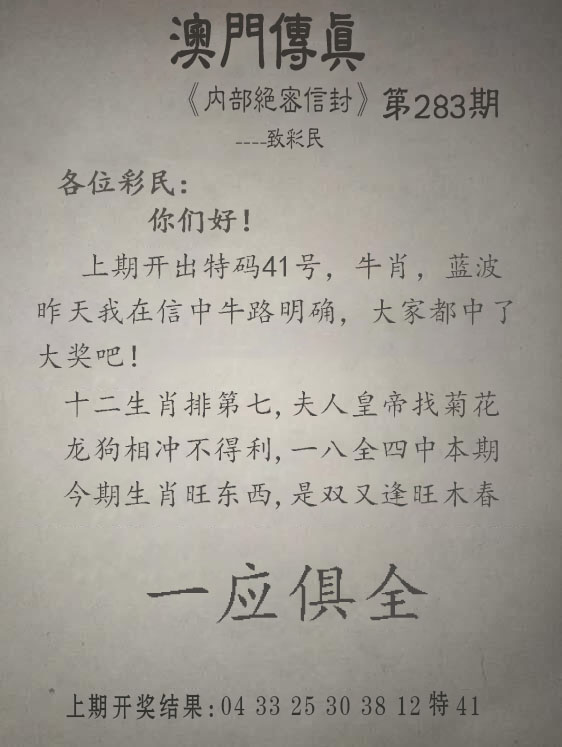 澳門傳真
《内部絕密信封》第283期
----致彩民
各位彩民：
你们好！
上期开出特码41号，牛肖，蓝波
昨天我在信中牛路明确，大家都中了
大奖吧！
十二生肖排第七,夫人皇帝找菊花
龙狗相冲不得利,一八全四中本期
今期生肖旺东西,是双又逢旺木春
一应俱全
上期开奖结果:04 33 25 30 38 12 特 41